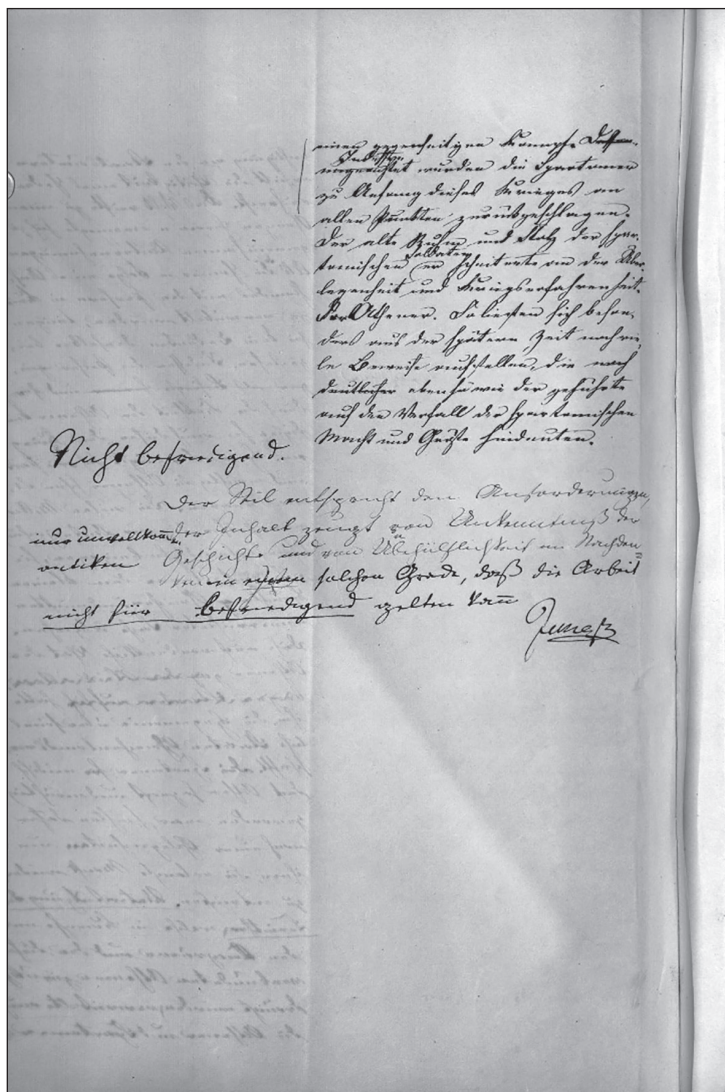 einen gegenseitigen Kampfe. Dessen-
ungeachtet wurden die Spartaner
zu Anfang dieses Krieges an
allen Punkten zurückgeschlagen.
Der alte Ruhm und Stolz der Spar-
tanischen Soldaten scheiterte an der Über-
legenheit und Kriegserfahrenheit
der Athener. So ließen sich beson-
ders aus der spätern Zeit noch vie-
le Beweise aufstellen, die noch
deutlicher ebenso wie der geführte
auf den Verfall der Spartanischen
Macht und Größe hindeuten.
Nicht befriedigend.
Der Stil entspricht den Anforderungen
nur unvollkom̅en, der Inhalt zeugt von Unkenntniß der
antiken Geschichte und von Unbehülflichkeit im Nachden=
ken in einem solchen Grade, daß die Arbeit
nicht für befriedigend gelten kan̅